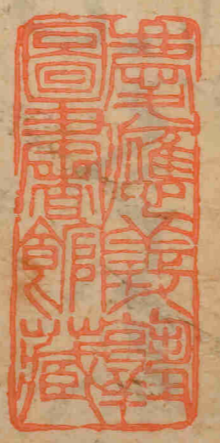 慶應義塾
圖書館藏